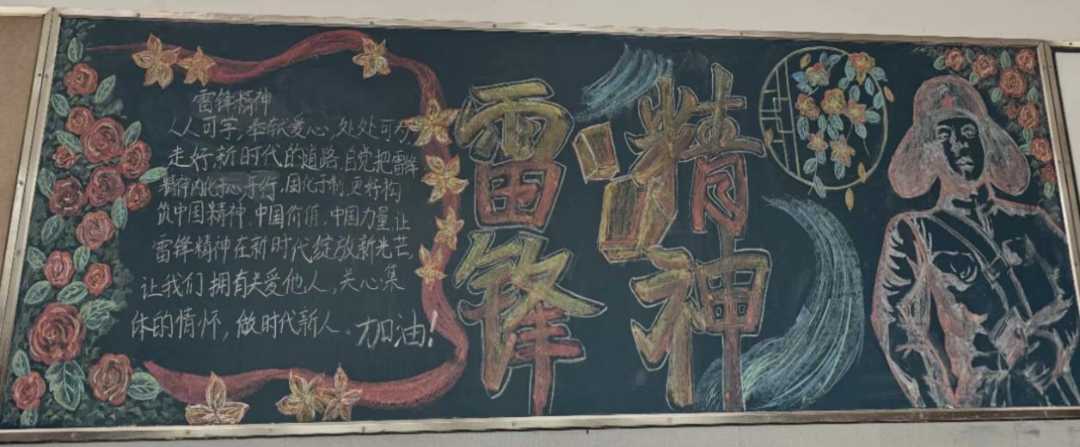 雷锋精神
人人可学,奉献爱心,处处可为,
走好新时代的道路,自觉把雷锋
精神内化于心,于行,固化于制,更好构
筑中国精神、中国价值、中国力量,让
雷锋精神在新时代绽放新光芒,
让我们拥有关爱他人,关心集
体的情怀,做时代新人。加油!
雷锋
精神